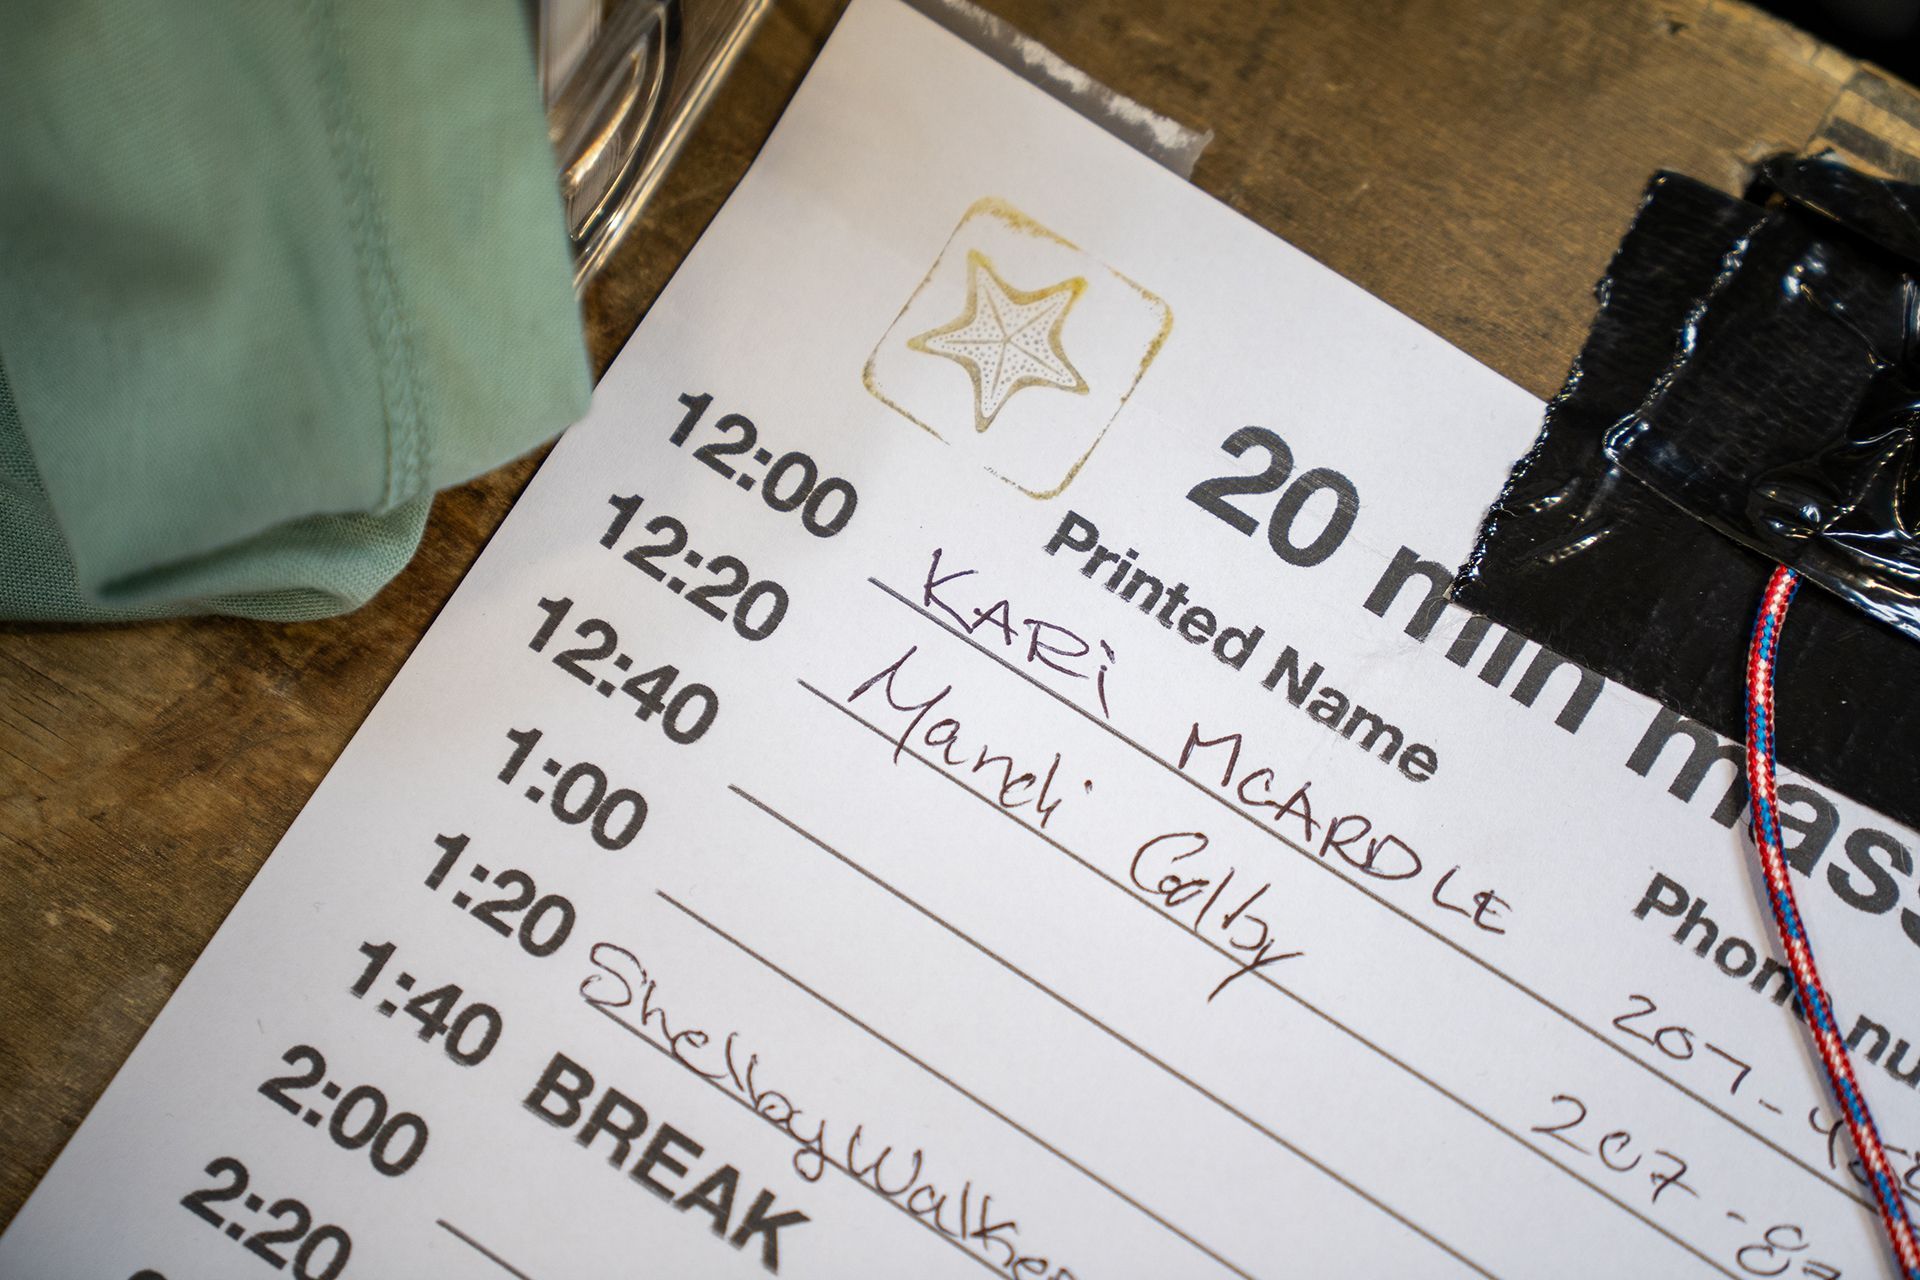 20 min mass
Printed Name Phone nu
12:00 KARi MCARDLE 207-4
12:20 Mandi Colby 207-8
12:40
1:00
1:20 Shelley Walke
1:40 BREAK
2:00
2:20